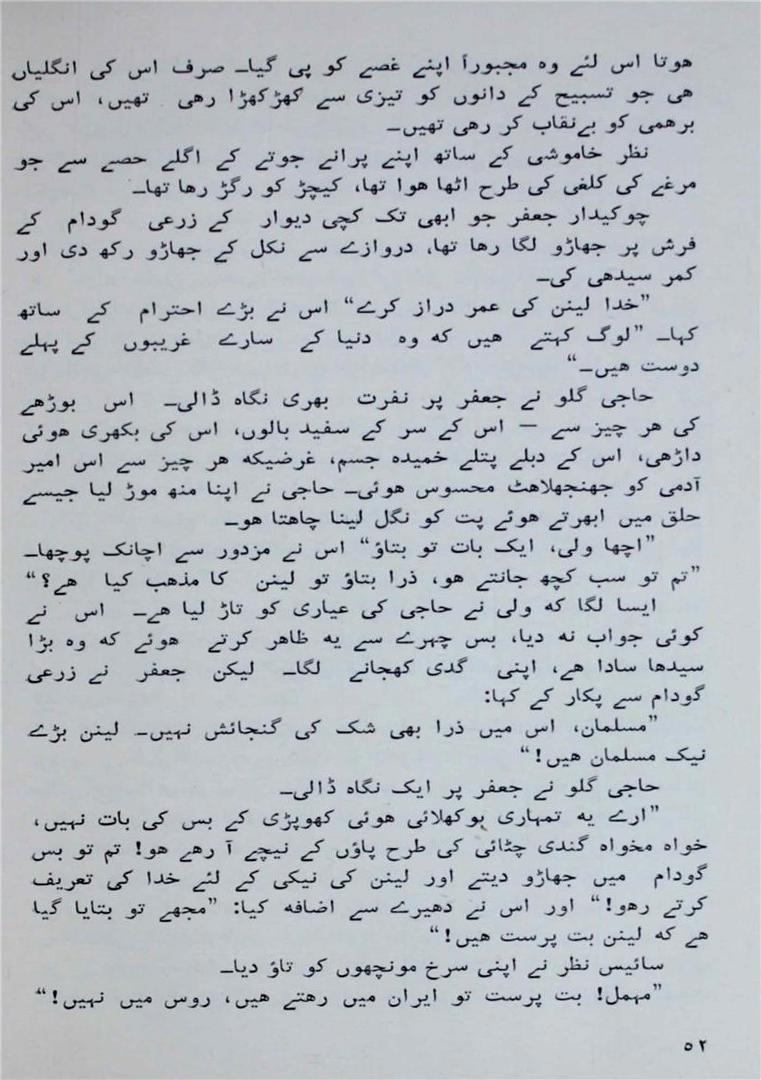 هوتا اس لئے وہ مجبوراً اپنے غصے کو پی گیا۔ صرف اس کی انگلیاں
هی جو تسبیح کے دانوں کو تیزی سے کھڑکھڑا رهی تھیں، اس کی
برهمی کو بےنقاب کر رهی تھیں۔
نظر خاموشی کے ساتھ اپنے پرانے جوتے کے اگلے حصے سے جو
مرغے کی کلغی کی طرح اٹھا هوا تھا، کیچڑ کو رگڑ رها تھا۔
چوکیدار جعفر جو ابھی تک کچی دیوار کے زرعی گودام کے
فرش پر جھاڑو لگا رها تھا، دروازے سے نکل کے جھاڑو رکھ دی اور
کمر سیدھی کی۔
”خدا لینن کی عمر دراز کرے“ اس نے بڑے احترام کے ساتھ
کہا۔ ”لوگ کہتے هیں که وہ دنیا کے سارے غریبوں کے پہلے
دوست هیں۔“
حاجی گلو نے جعفر پر نفرت بھری نگاہ ڈالی۔ اس بوڑھے
کی هر چیز سے — اس کے سر کے سفید بالوں، اس کی بکھری هوئی
داڑھی، اس کے دبلے پتلے خمیدہ جسم، غرضیکه هر چیز سے اس امیر
آدمی کو جھنجھلاهٹ محسوس هوئی۔ حاجی نے اپنا منھ موڑ لیا جیسے
حلق میں ابھرتے هوئے پت کو نگل لینا چاهتا هو۔
”اچھا ولی، ایک بات تو بتاؤ“ اس نے مزدور سے اچانک پوچھا۔
”تم تو سب کچھ جانتے هو، ذرا بتاؤ تو لینن کا مذهب کیا هے؟“
ایسا لگا که ولی نے حاجی کی عیاری کو تاڑ لیا هے۔ اس نے
کوئی جواب نه دیا، بس چہرے سے یه ظاهر کرتے هوئے که وہ بڑا
سیدھا سادا هے، اپنی گدی کھجانے لگا۔ لیکن جعفر نے زرعی
گودام سے پکار کے کہا:
”مسلمان، اس میں ذرا بھی شک کی گنجائش نہیں۔ لینن بڑے
نیک مسلمان هیں!“
حاجی گلو نے جعفر پر ایک نگاہ ڈالی۔
”ارے یه تمہاری بوکھلائی هوئی کھوپڑی کے بس کی بات نہیں،
خواہ مخواہ گندی چٹائی کی طرح پاؤں کے نیچے آ رهے هو! تم تو بس
گودام میں جھاڑو دیتے اور لینن کی نیکی کے لئے خدا کی تعریف
کرتے رهو!“ اور اس نے دھیرے سے اضافه کیا: ”مجھے تو بتایا گیا
هے که لینن بت پرست هیں!“
سائیس نظر نے اپنی سرخ مونچھوں کو تاؤ دیا۔
”مہمل! بت پرست تو ایران میں رهتے هیں، روس میں نہیں!“
۵۲